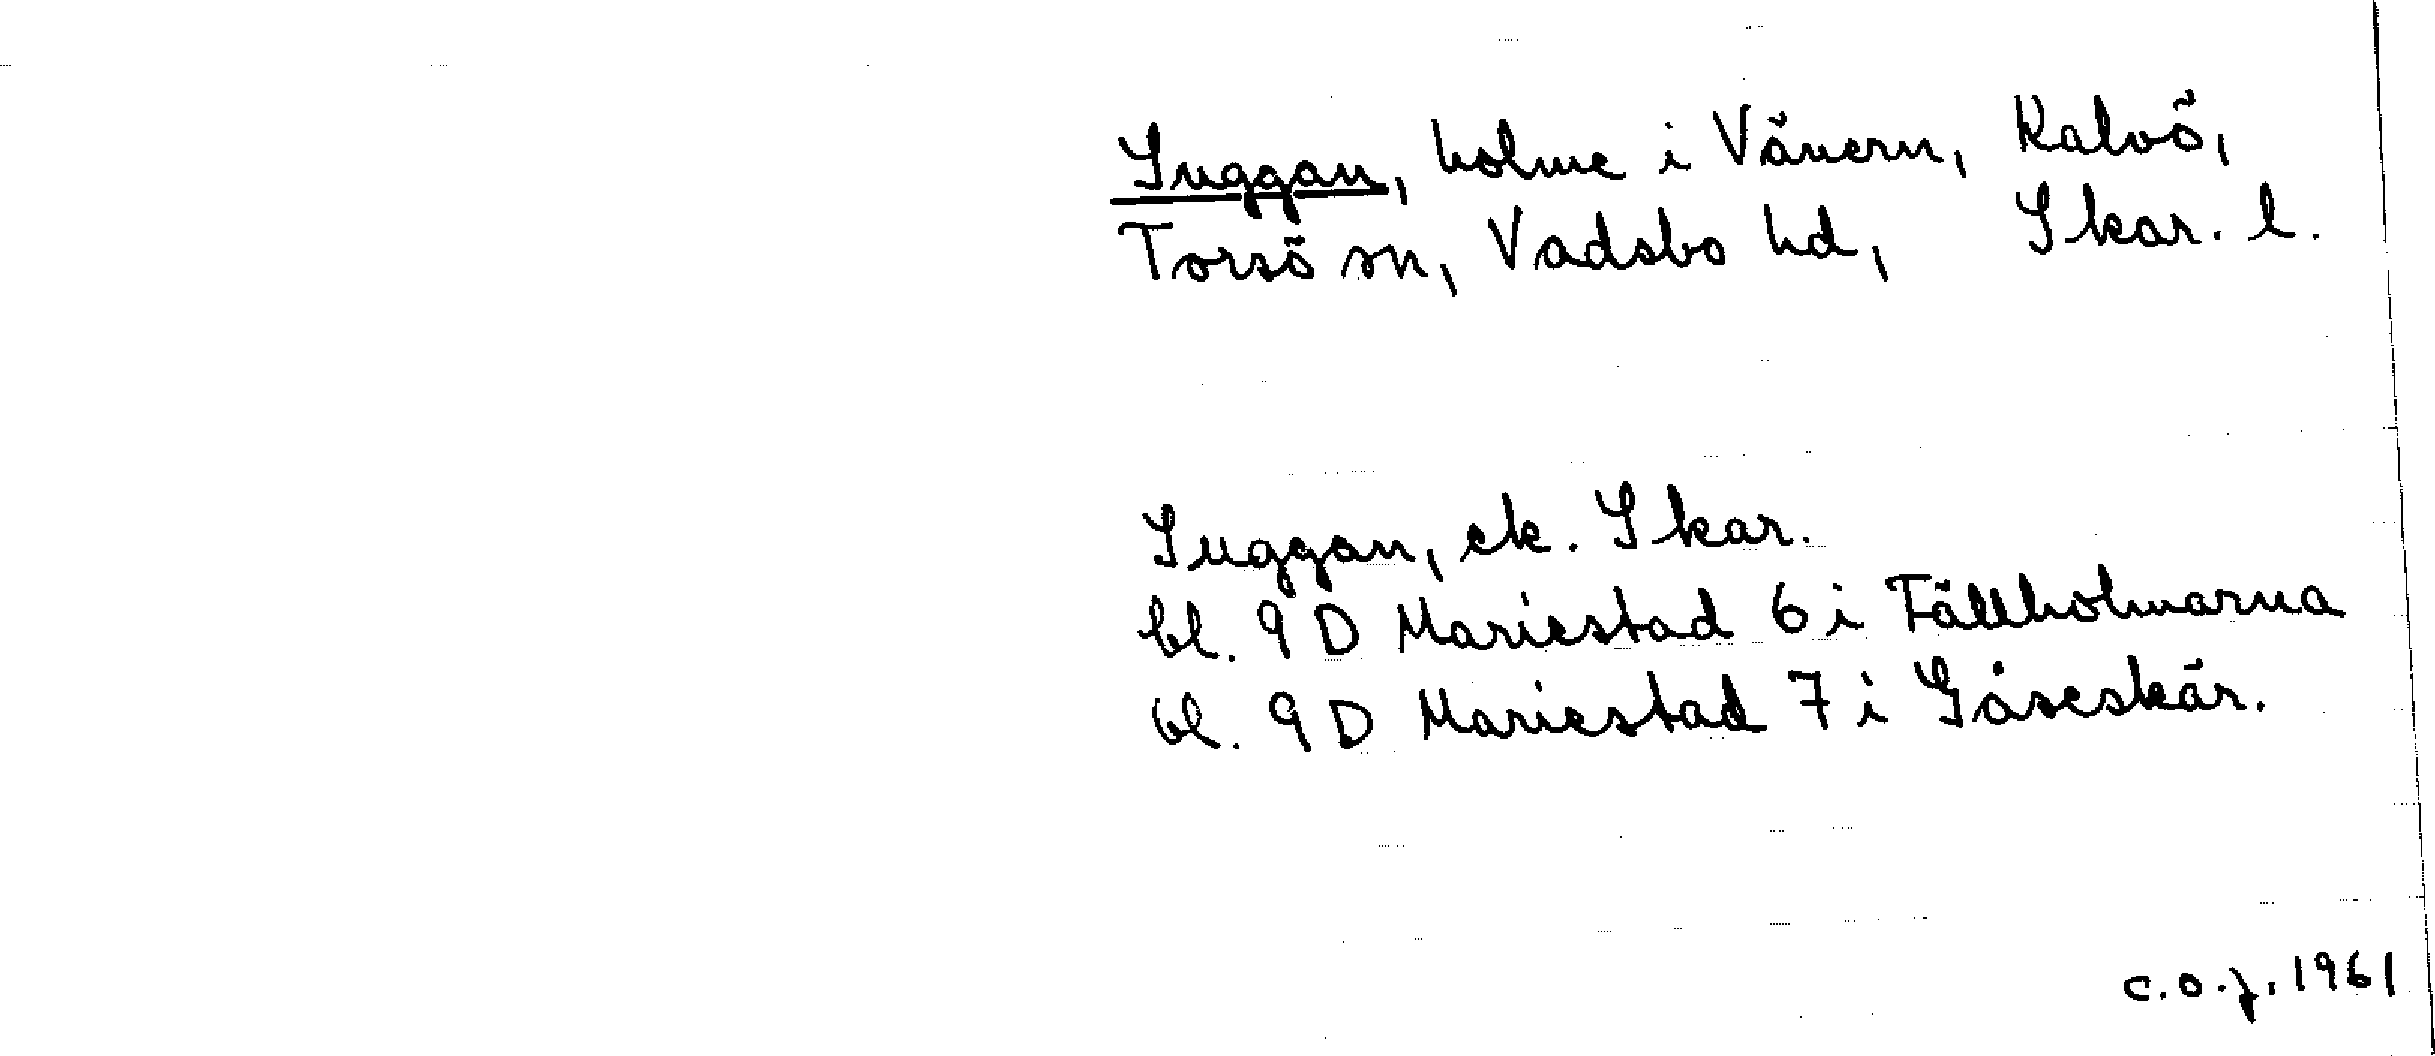 Suggan, holme i Vänern, Kalvö,
Torsö sn, Vadsbo hd, Skar. l.
Suggan, ek. Skar.
bl. 9 D Mariestad 6 i Fällholmarna
bl. 9 D Mariestad 7 i Gåseskär.
c.o.j. 1961